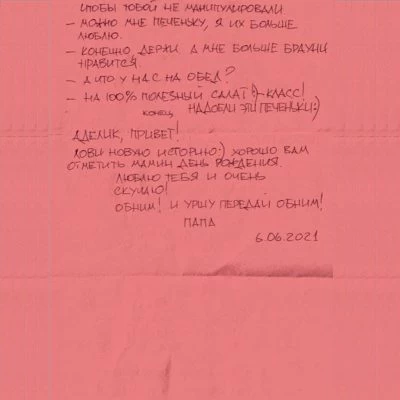 чтобы тобой не манипулировали
– можно мне печеньку, я их больше
люблю.
– конечно, держи. а мне больше брауни
нравится.
– а что у нас на обед?
– на 100% полезный салат!)– класс!
конец. надоели эти печеньки:)
Аделик, привет!
лови новую историю:) хорошо вам
отметить мамин день рождения.
люблю тебя и очень
скучаю!
обним! и Уршу передай обним!
папа
6.06.2021